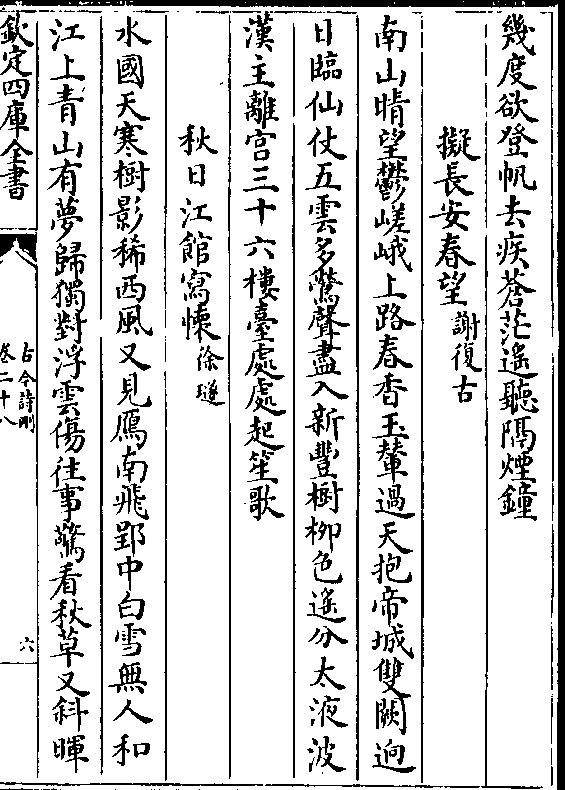 幾度欲登帆去疾蒼茫遥聽隔煙鐘
擬長安春望 謝復古
南山晴望鬱嵯峨上路春香玉輦過天抱帝城雙闕迥
日臨仙仗五雲多鶯聲盡入新豐樹柳色遙分太液波
漢主離宫三十六樓臺處處起笙歌
秋日江館寫懷 徐璲
水國天寒樹影稀西風又見鴈南飛郢中白雪無人和
江上青山有夢歸獨對浮雲傷往事驚看秋草又斜暉
欽定四庫全書
古今詩刪
卷二十八
六